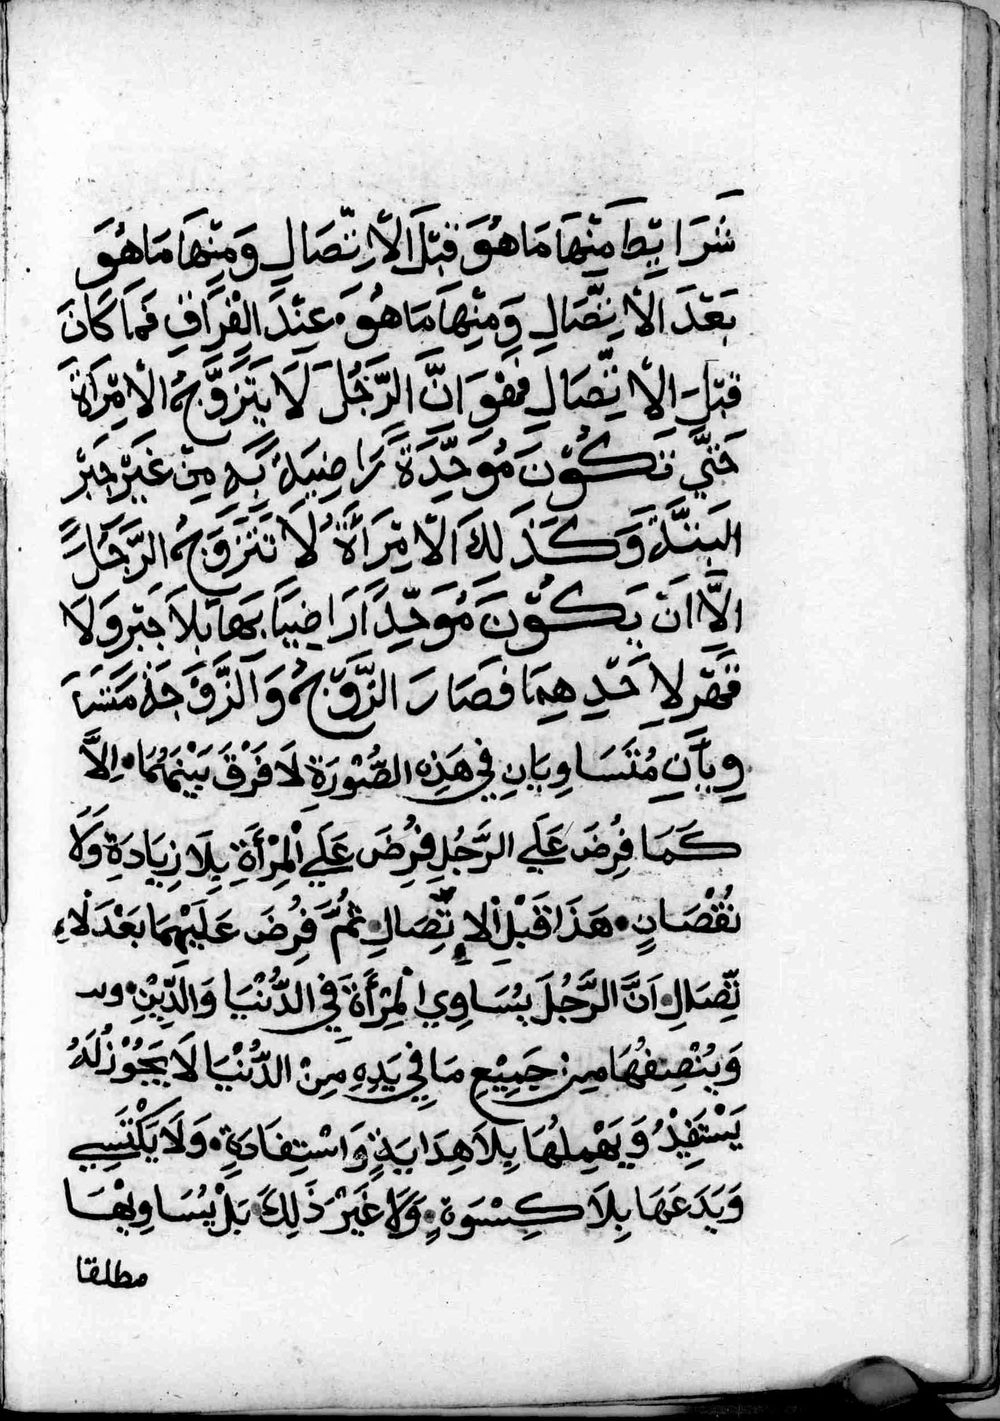 شَرَايِطَ مِنْهَا مَا هُوَ قَبْلَ الْاِتِّصَالِ وَمِنْهَا مَا هُوَ
بَعْدَ الْاِتِّصَالِ وَمِنْهَا مَا هُوَ • عِنْدَ الْفِرَاقِ فَمَا كَانَ
قَبْلَ الْاِتِّصَالِ فَهُوَ اَنَّ الرَّجُلَ لَا يَتَزَوَّجُ الْاِمْرَاَةَ
حَتَّي تَكُوْنَ مُوَحِّدَةً رَاضِيَةً بِهِ مِنْ غَيْرِ جَبْرٍ
الْبَتَّةَ وَكَذَلِكَ الْاِمْرَأَةُ لَا تَتَزَوَّجُ الرَّجُلَ
اِلَّا اَنْ يَكُوْنَ مُوَحِّدًا رَاضِيًا بِهَا بِلَا جَبْرٍ وَلَا
قَهْرٍ لِاَحَدِهِمَا فَصَارَ الزَّوْجُ وَالزَّوْجَةُ مُتَسَا
وِيَانِ مُتَسَاوِيَانِ فِي هَذِهِ الصُّوْرَةِ لَا فَرْقَ بَيْنَهُمَا • اِلَّا
كَمَا فُرِضَ عَلَي الرَّجُلِ فُرِضَ عَلَي الْمِرْأَةِ بِلَا زِيَادَةٍ وَلَا
نُقْصَانٍ • هَذَا قَبْلَ الْاِتِّصَالِ • ثُمَّ فُرِضَ عَلَيْهِمَا بَعْدَ لْاءِ
تِّصَالِ • اَنَّ الرَّجُلَ يُسَاوِي الْمِرْأَةَ فِي الدُّنْيَا وَالدِّيْنِ • و
وَيُنْصِفُهَا مِنْ جَمِيْعِ مَا فِي يَدِهِ مِنْ الدُّنْيَا لَا يَجُوْزُ لَهُ
يَسْتَفِيْدُ وَيَهْمِلُهَا بِلَا هِدَايَةٍ وَاسْتِفَادَةٍ • وَلَا يَكْتَسِي
وَيَدَعَهَا بِلَا كِسْوَةٍ • وَلَا غَيْرَ ذَلِكَ بَلْ يُسَاوِيْهَا
مطلقا